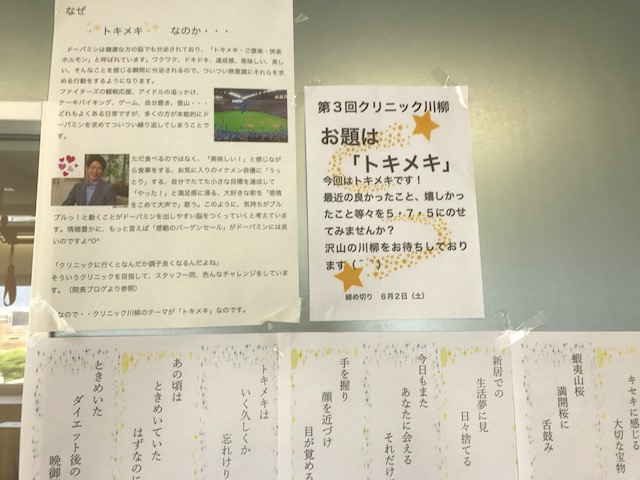 なぜ
トキメキ　なのか・・・
ドーパミンは健康な方の脳でも分泌されており、「トキメキ・ご褒美・快楽
ホルモン」と呼ばれています。ワクワク、ドキドキ、達成感、美味しい、美し
い、そんなことを感じる瞬間に分泌されるので、ついつい無意識にそれらを求
める行動をするようになります。
ファイターズの観戦応援、アイドルの追っかけ、
ケーキバイキング、ゲーム、自分磨き、登山・・・
どれもよくある日常ですが、多くの方が本能的にド
ーパミンを求めてついつい繰り返してしまうことで
す。
ただ食べるのではなく、「美味しい！」と感じなが
ら食事をする、お気に入りのイケメン俳優に「うっ
とり」する、自分でたてた小さな目標を達成して
「やった！」と満足感に浸る、大好きな歌を「感情
をこめて大声で」歌う。このように、気持ちがブル
ブルっ！と動くことがドーパミンを出しやすい脳をつくっていくと考えていま
す。情緒豊かに、もっと言えば「感動のバーゲンセール」がドーパミンには良
いのですよ^O^
「クリニックに行くとなんだか調子良くなるんだよね」
そういうクリニックを目指して、スタッフ一同、色んなチャレンジをしていま
す。（院長ブログより参照）
なので・・クリニック川柳のテーマが「トキメキ」なのです。
第３回クリニック川柳
お題は
「トキメキ」
今回はトキメキです！
最近の良かったこと、嬉しかっ
たこと等々を５・７・５にのせ
てみませんか？
沢山の川柳をお待ちしており
ます（＾＾）
締め切り　６月２日（土）
キセキに感じる
大切な宝物
蝦夷山桜
満開桜に
舌鼓み
新居での
生活夢に見
日々捨てる
今日もまた
あなたに会える
それだけ
手を握り
顔を近づけ
目が覚める
トキメキは
いく久しくか
忘れけり
あの頃は
ときめいていた
はずなのに
ときめいた
ダイエット後の
晩御